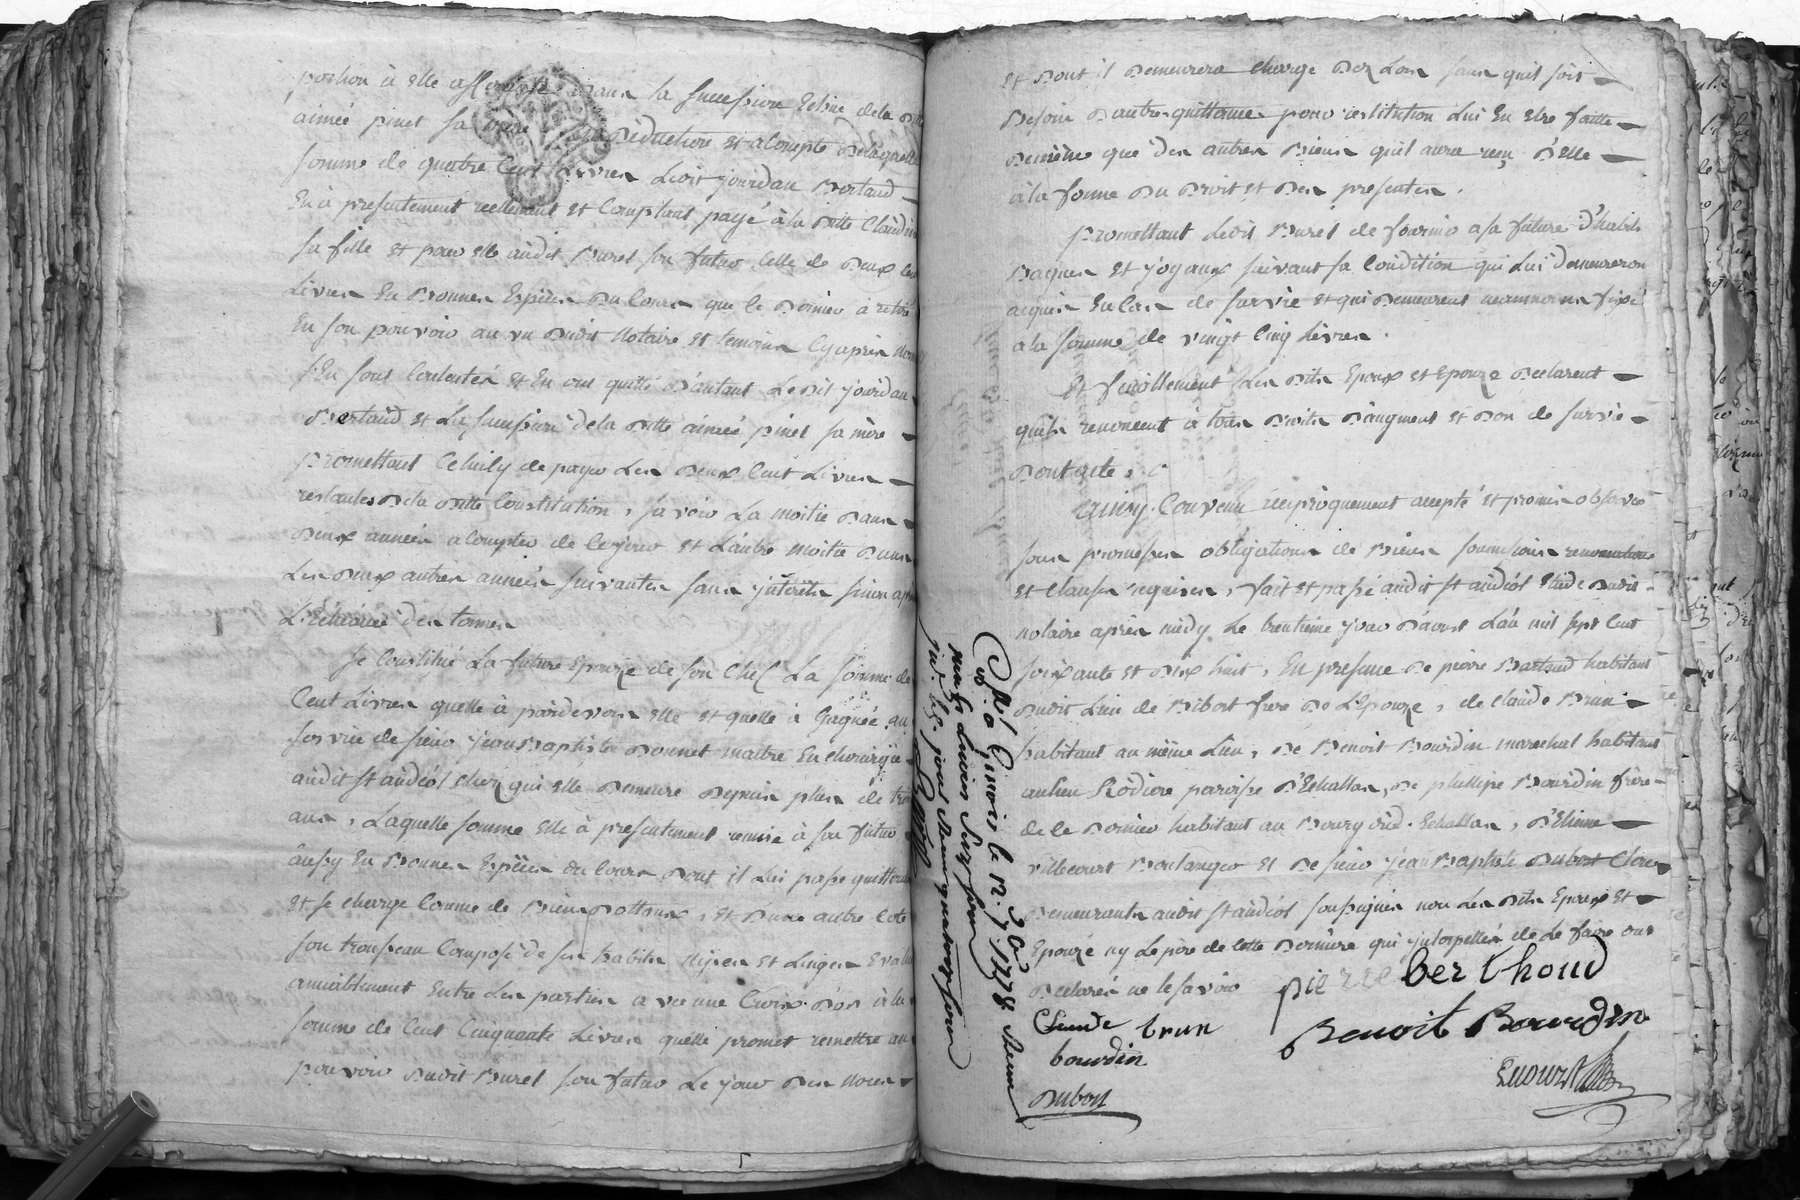 portion à elle dans la succession Echue dela ditte
aimée pinet sa mere Déduction et acompte delaquelle
somme de quatre Cent Livres Ledit jourdan Bertaud
En à presentement reellement et Comptant payé à la ditte Claudine
sa fille et pour elle audit Buret son futur Celle de Deux Cent
Livres En Bonnes Espèces du Cours que le Dernier à retiré
En son pouvoir au vu dudit Notaire et temoins Cyaprès
S'En sont Contentés et En ont quitté D'autant Ledit jourdan
Bertaud et La succession dela ditte aimée pinet sa mère
promettant Celuicy de payer Les Deux Cent Livres
restantes Dela ditte Constitution, savoir La moitié Dans
Deux années acompter de Cejour et L'autre moitié Dans
Les Deux autres années suivantes sans jnterets sinon après
L'Echéance des termes
Se Constitue La future Epouze de son Chef La somme de
Cent Livres quelle à pardevers elle et quelle à Gagnée au
service de sieur jean Baptiste Bonnet maitre En chirurgie
audit st andéol chez qui elle Demeure Depuis plus de trois
ans, Laquelle somme Elle à presentement remise à son futur
aussy En Bonnes Espèces du Cours Dont il Lui passe quittance
et se charge Comme de Biens Dottaux, et D'une autre Coté
son trousseau Composé de ses habits Nipes et Linges Evalué
amiablement Entre Les parties avec une Croix D'or à la
somme de Cent Cinquante Livres quelle promet remettre au
pouvoir dudit Buret son futur Le jour Des Noces
et Dont il Demeurera charge Dez Lors sans quil soit
Besoin D'autre quittance pour restitution Lui En etre faitte
Demême que des autres Biens quil aura reçu D'elle
à la forme Du Droit et Des presentes.
Promettant Ledit Buret de fournir a sa future D'habits
Bagues et joyaux suivant sa Condition qui Lui Demeureront
acquis En Cas de survie et qui Demeurent neanmoins fixé
a la somme de vingt Cinq Livres.
Et finallement Les dits Epoux et Epouze Declarent
quils renoncent à tous Droits D'augment et Don de survie
Dont acte,
Ainsy Convenu reciproquement accepté et promis observer
sous promesses obligations de Biens soumissions renonciations
et Clauses requises, fait et passé audit st andéol Etude dudit
notaire après midy Le trentieme jour D'aoust L'an mil sept Cent
soixante et Dix huit, En presence De pierre Bertaud habitant
dudit Lieu de Ribost frere De L'Epouze, de claude Brun
habitant au même Lieu, De Benoit Bourdin marechal habitant
au lieu Rodiere paroisse D'Echallas, De phillipe Bourdin frère
de Ce Dernier habitant au Bourg dud. Echallas, D'Etienne
villecourt Boulanger et De sieur jean Baptiste Dubost Clerc
Demeurants audit st andéol soussignés non Les dits Epoux et
Epouze ny Le père de Cette Dernière qui jnterpellés de Le faire ont
Declarés ne le savoir
pierre berthoud
Claude brun
Benoit Bourdin
bourdin
Dubost
a Givors le 12. 7bre 1778